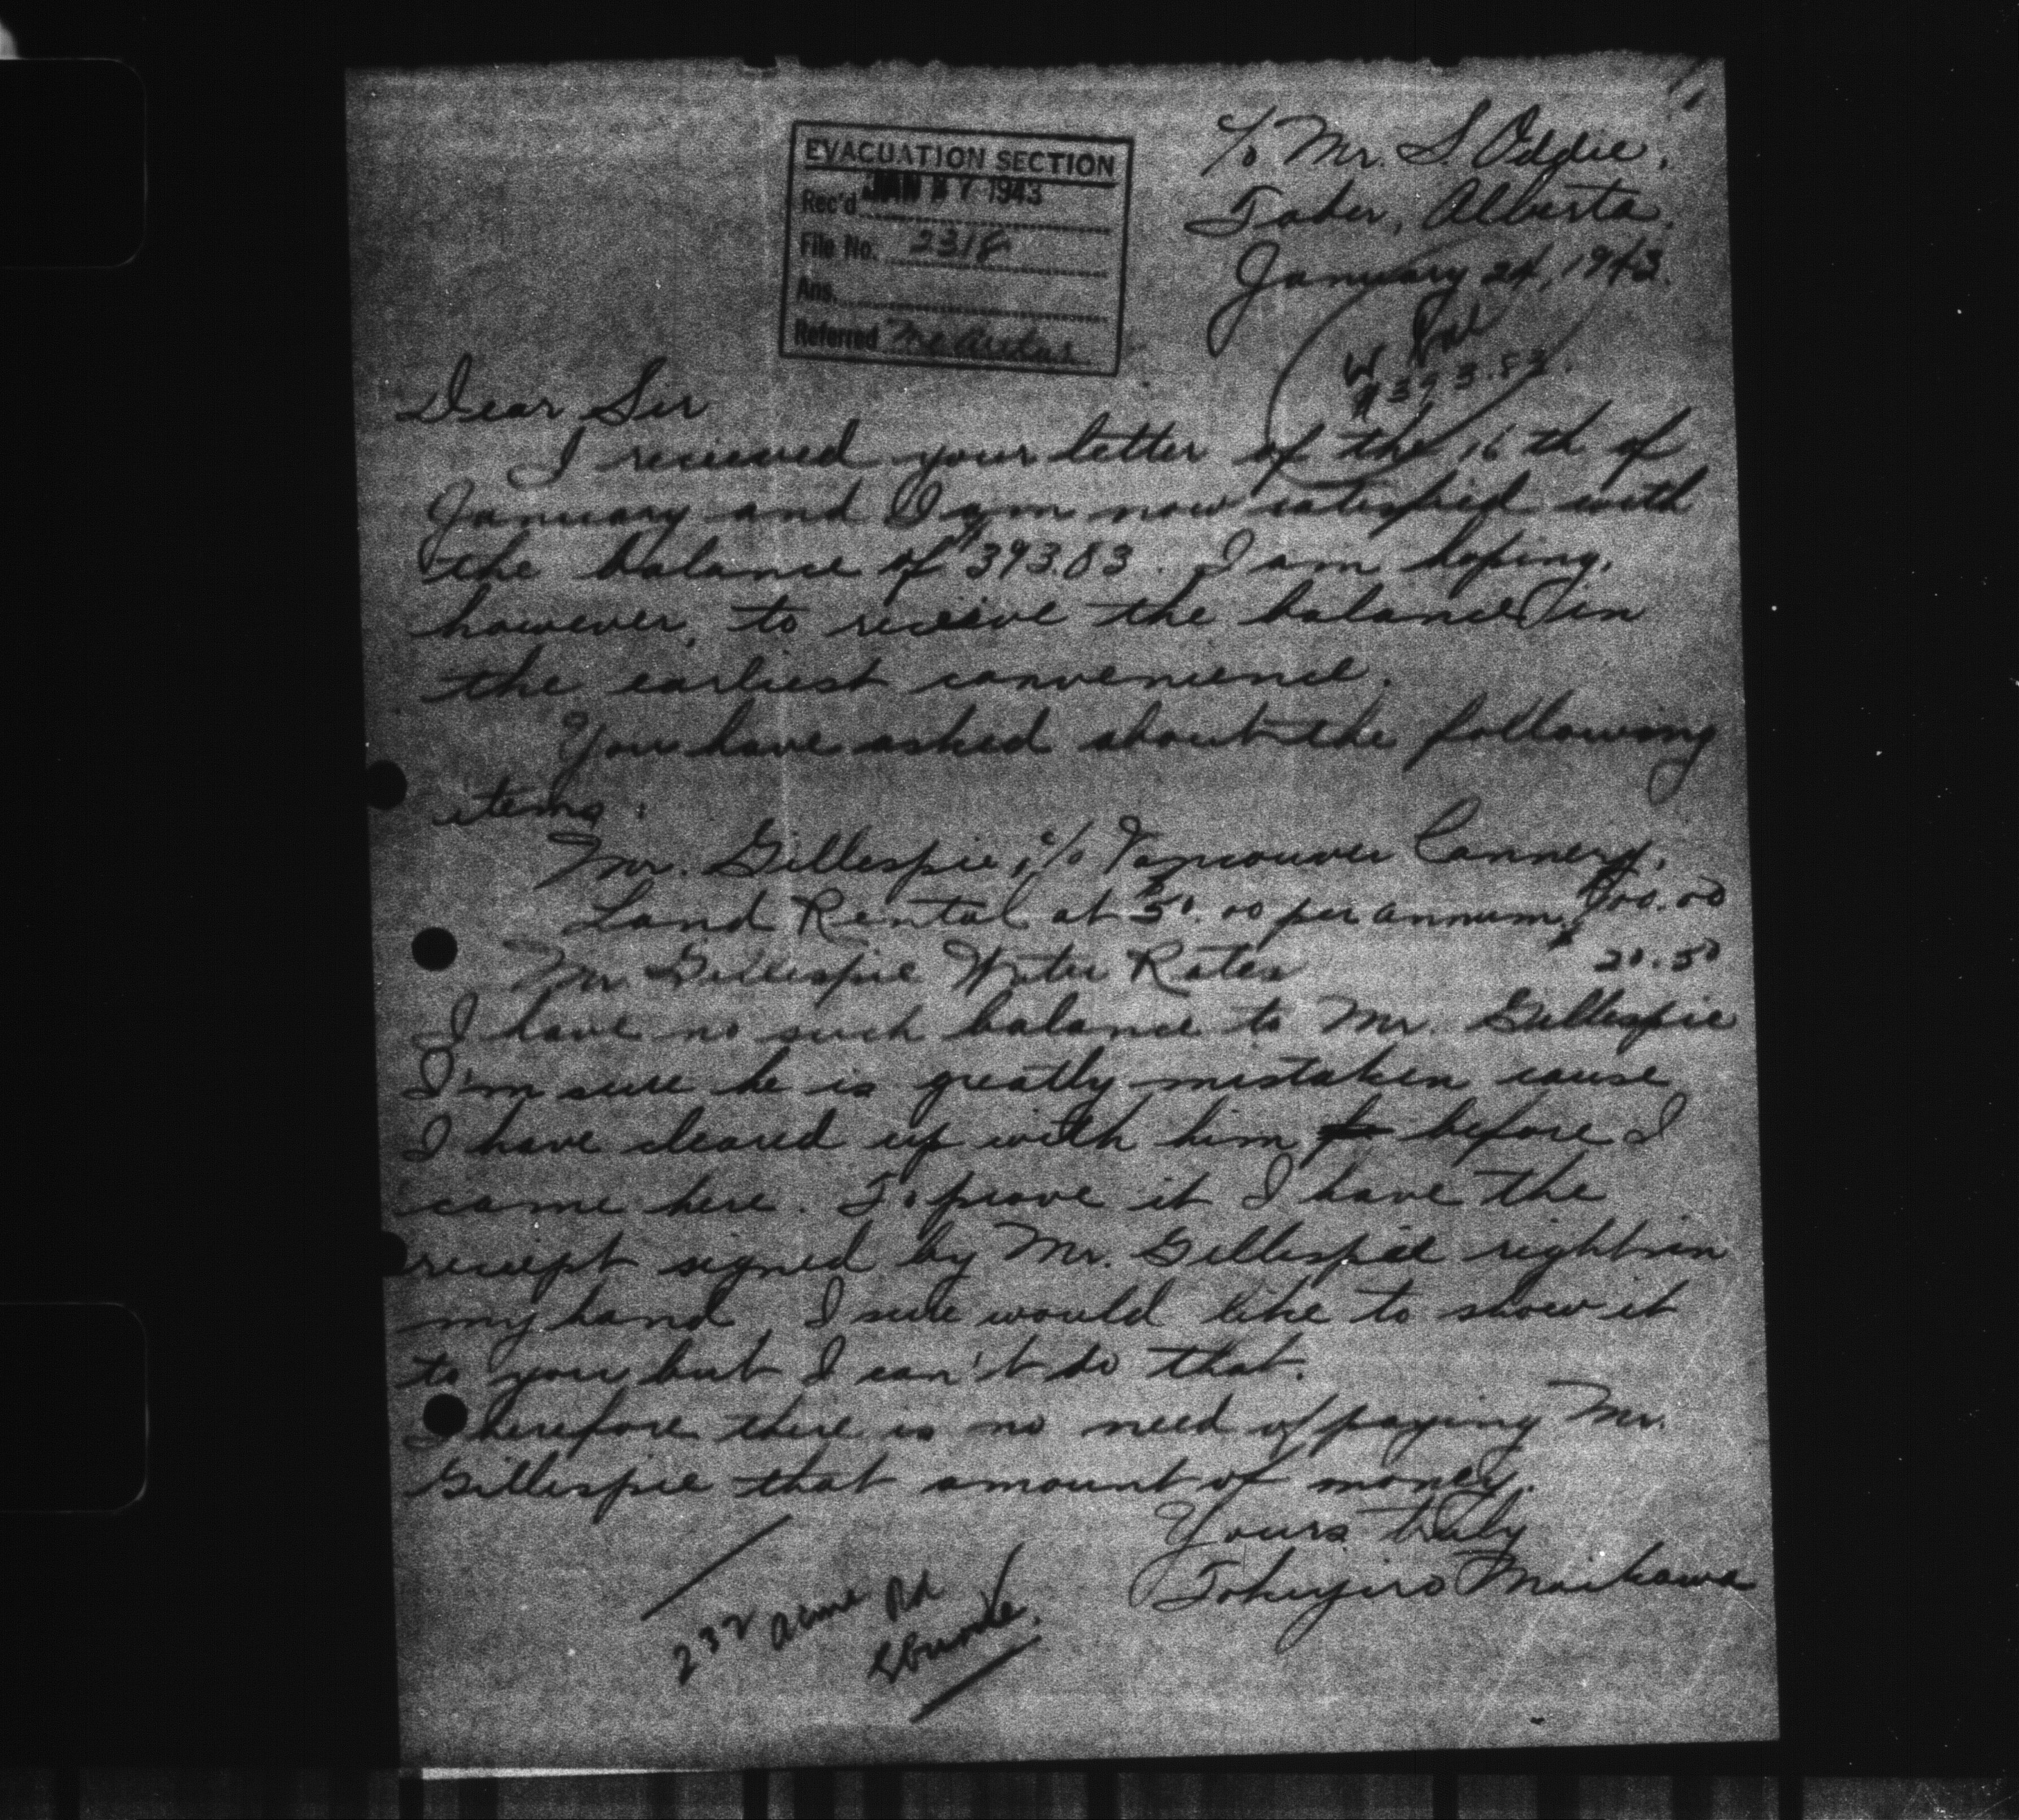 EVACUATION SECTION
Rec'd JAN 27 1943
File No. 2318
Ans.
Referred
c/o Mr. S. Oddie,
Taber, Alberta.
January 24, 1943.
$393.83.
Dear Sir
I recieved your letter of the 16 th of
January and I am now satisfied with
the balance of $393.83. I am hoping,
however, to recieve the balance in
the earliest convenience.
You have asked about the following
items:
Mr. Gillespie, c/o Vancouver Cannery,
Land Rental at $50.00 per annum, $100.00
Mr. Gillespie Water Rates 20.50
I have no such balance to Mr. Gillespie
I'm sure he is greatly mistaken cause
I have cleared up with him before I
came here. To prove it I have the
reciept signed by Mr. Gillespie right in
my hand. I sure would like to show it
to you but I can't do that.
Therefore there is no need of paying Mr.
Gillespie that amount of money.
Yours truly
Tokujiro Maikawa
232 Acme Rd
Eburne.